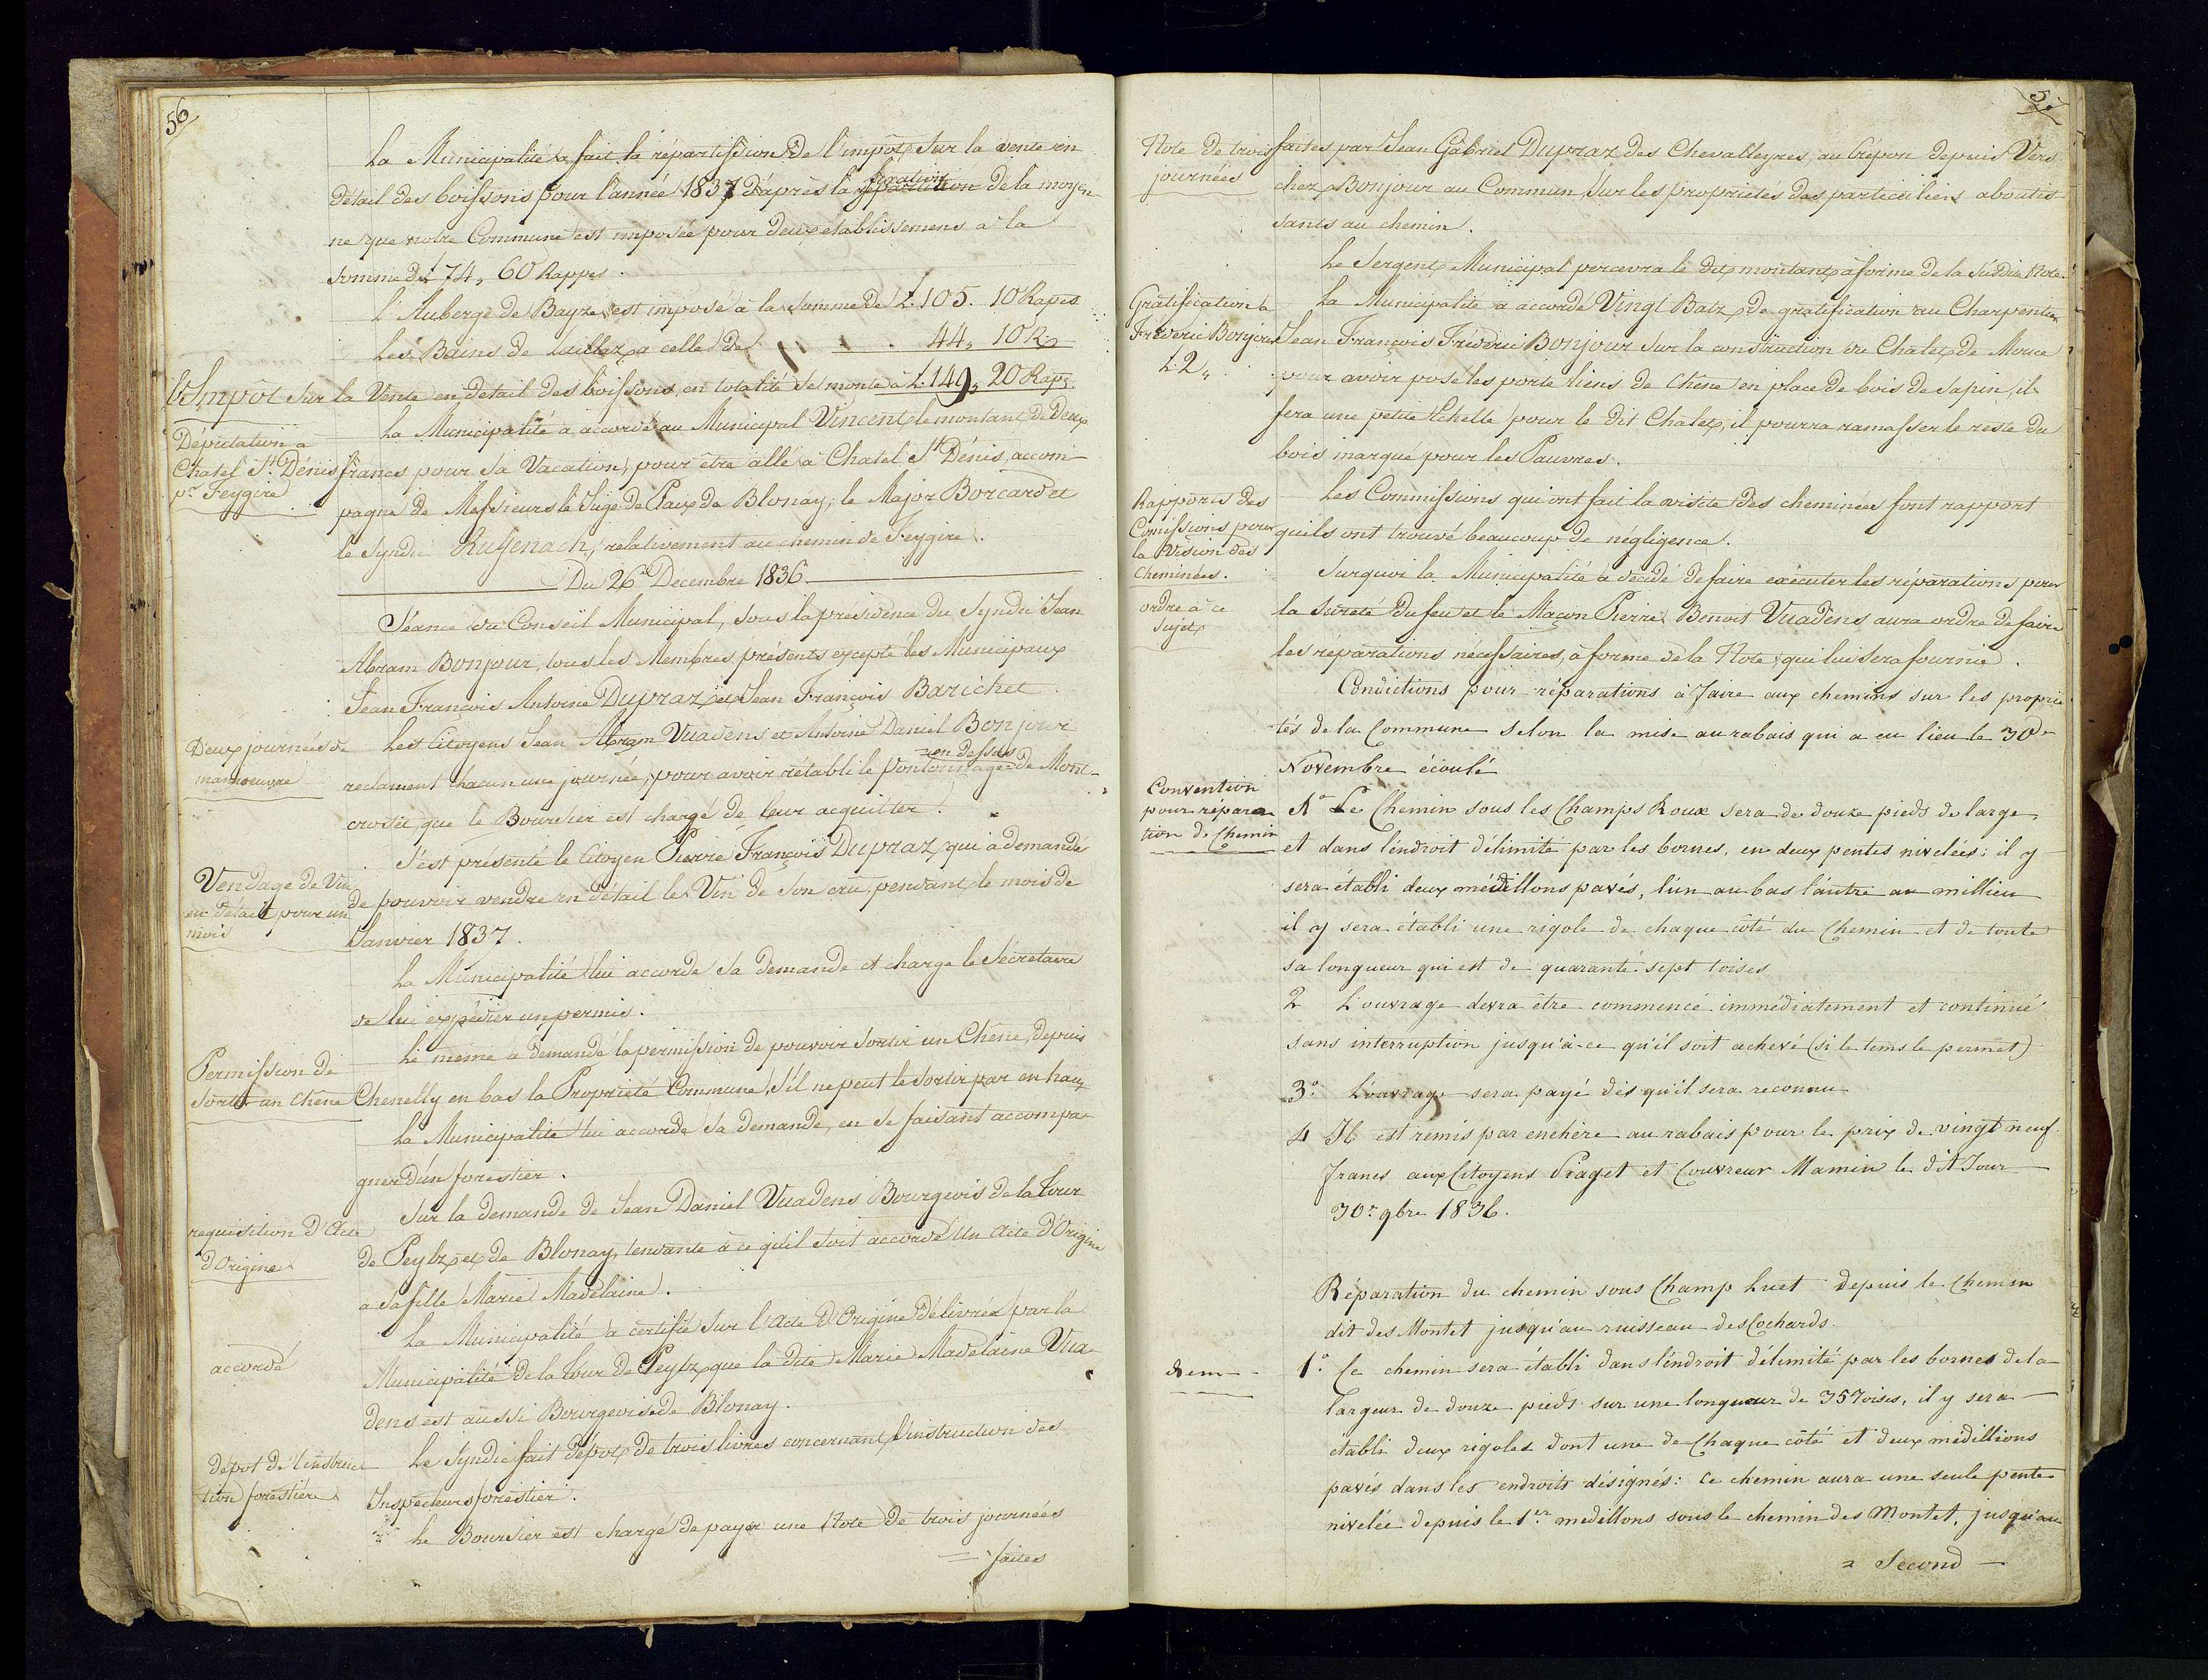 56
La Municipalité a fait la répartission de l'impôt Sur la vente en
détail des boissons pour l'année 1837 d'après la fixation répartition de la moyen-
ne que notre Commune est imposée pour deux établissemens a la
somme de L 74, 60 Rappes.
l'Auberge de Bayze est imposé à la Somme de L. 105. 10 Rapes
Les Bains de Laillez a celle de 44, 10 R
L'Impôt Sur la Vente en détail des boissons, en totalité Se monte à L. 149, 20 Rap.
Députation a
Chatel St Dénis
pr Feygire
La Municipalité à accordé au Municipal Vincent le montant de Deux
francs pour Sa Vacation, pour être allé à Chatel St Dénis, accom-
pagné de Messieurs le Juge de Paix de Blonay, le Major Borcard et
le Syndic Rutjenach, relativement au chemin de Feygire.
Du 26e Decembre 1836.
Séance du Conseil Municipal, Sous la présidence du Syndic Jean
Abram Bonjour, tous les Membres présents excepté les Municipaux
Jean François Antoine Dupraz et Jean François Barichet
Deux journées de
mannoeuvre
Les Citoyens Jean Abram Vuadens et Antoine Daniel Bonjour
reclament chacun une journée, pour avoir rétabli le pontonnage en dessus de Mont-
croisée, que le Boursier est chargé de leur acquitter.
Vendage de Vin
en détail pour un
mois
S'est présenté le Citoyen Pierre François Dupraz, qui a demandé
de pouvoir vendre en détail le Vin de Son crû, pendant le mois de
Janvier 1837.
La Municipalité lui accorde Sa demande et charge le Sécrétaire
de lui expédier un permis.
Permission de
Sortir un chêne
Le même à demandé la permission de pouvoir Sortir un Chêne, depuis
Chenelly en bas la Propriété Commune, S'il ne peut le Sortir par en haut
La Municipalité lui accorde Sa demande, en se faisant accompa-
gner d'un forestier.
requisition d'Acte
d'Origine
Sur la demande de Jean Daniel Vuadens Bourgeois de la Tour
de Peylz et de Blonay, tendante à ce qu'il Soit accordé un Acte d'Origine
a Sa fille Marie Madelaine.
accordé
La Municipalité a certifié Sur l'Acte d'Origine délivrée par la
Municipalité de la Tour de Peylz que la dite Marie Madelaine Vua-
dens est aussi Bourgeoise de Blonay.
dépot de l'instruc-
tion forestière
Le Syndic fait dépot de trois livres concernant l'instruction des
Inspecteurs forestier.
Le Boursier est chargé de payer une Note de trois journées
= faites
57
Note de trois
journées
faites par Jean Gabriel Dupraz des Chevalleyres, au Crépon depuis Vers
chez Bonjour au Commun, Sur les propriétés des particuliers aboutis-
sants au chemin.
Le Sergent Municipal percevra le dit montant à forme de la Susdite Note.
Gratification a
Fréderic Bonjour
L. 2,
La Municipalité a accordé Vingt Batz de gratification au Charpentier
Jean François Fréderic Bonjour Sur la construction du Chalet de Mouce
pour avoir posé les porte liens de Chêne en place de bois de Sapin, il
fera une petite Echelle pour le dit Chalet, il pourra ramasser le reste du
bois marqué pour les Pauvres.
Rapports des
Comissions pour
la Vision des
cheminées.
ordre à ce
Sujet
Les Commissions qui ont fait la visite des cheminées font rapport
quils ont trouvé beaucoup de négligence.
Surquoi la Municipalité à décidé de faire exécuter les réparations pour
la Sureté du feu et le Maçon Pierre Benoit Vuadens aura ordre de faire
les réparations nécessaires, à forme de la Note qui lui Sera fournie.
Condictions pour réparations à faire aux chemins sur les proprié-
tés de la Commune selon la mise au rabais qui a eu lieu le 30e
Novembre écoulé
Convention
pour répara
tion de Chemin
1° Le Chemin sous les Champs Roux sera de douze pieds de large
et dans l'éndroit délimité par les bornes, en deux pentes nivelées: il y
sera établi deux médillons pavés, l'un au bas l'autre au millieu
il y sera établi une rigole de chaque côté du Chemin et de toute
sa longueur qui est de quarante-sept toises
2 L'ouvrage devra être commencé immédiatement et continué
sans interruption jusqu'à-ce qu'il soit achevé (si le tems le permet)
3° L'ouvrage sera payé dès qu'il sera reconnu
4 Il est remis par enchère au rabais pour le prix de vingt neuf
francs aux Citoyens Piaget et Couvreur Mamin le dit Jour
30e 9bre 1836.
Réparation du chemin sous Champ Luet depuis le Chemin
dit des Montet jusqu'au ruisseau des Cochards.
Idem
1° Ce chemin sera établi dans l'éndroit délimité par les bornes de la
largeur de douze pieds sur une longueur de 35 Toises, il y sera
établi deux rigoles dont une de Chaque côté et deux médillions
pavés dans les endroits désignés: Ce chemin aura une seule pente
nivelée depuis le 1er medillons sous le chemin des Montet, jusqu'au
= Second